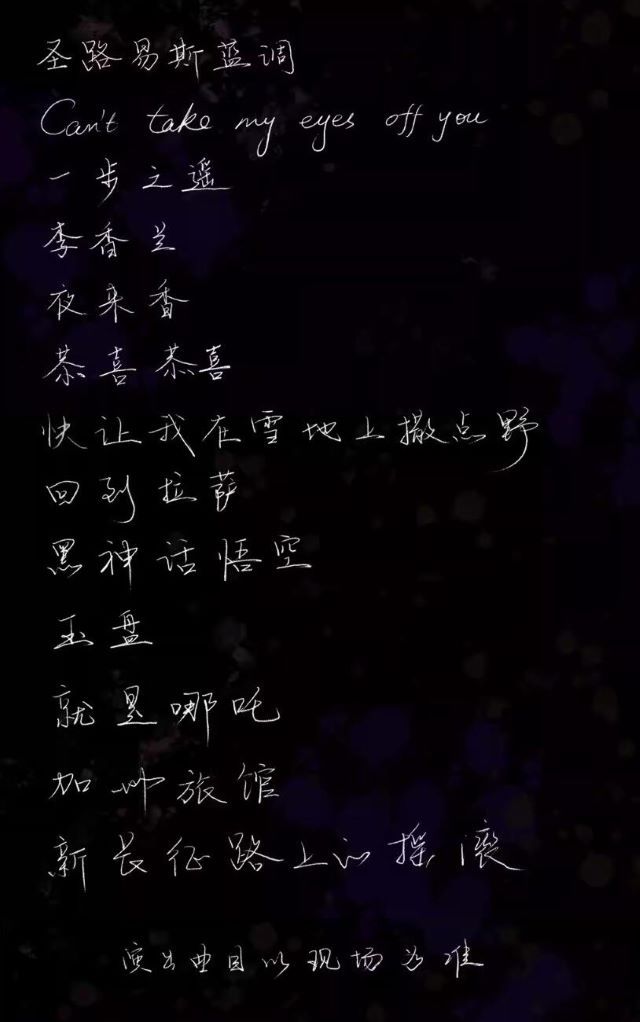 圣路易斯蓝调
Can't take my eyes off you
一步之遥
李香兰
夜来香
恭喜恭喜
快让我在雪地上撒点野
回到拉萨
黑神话悟空
玉盘
就是哪吒
加州旅馆
新长征路上的摇滚
演出曲目以现场为准